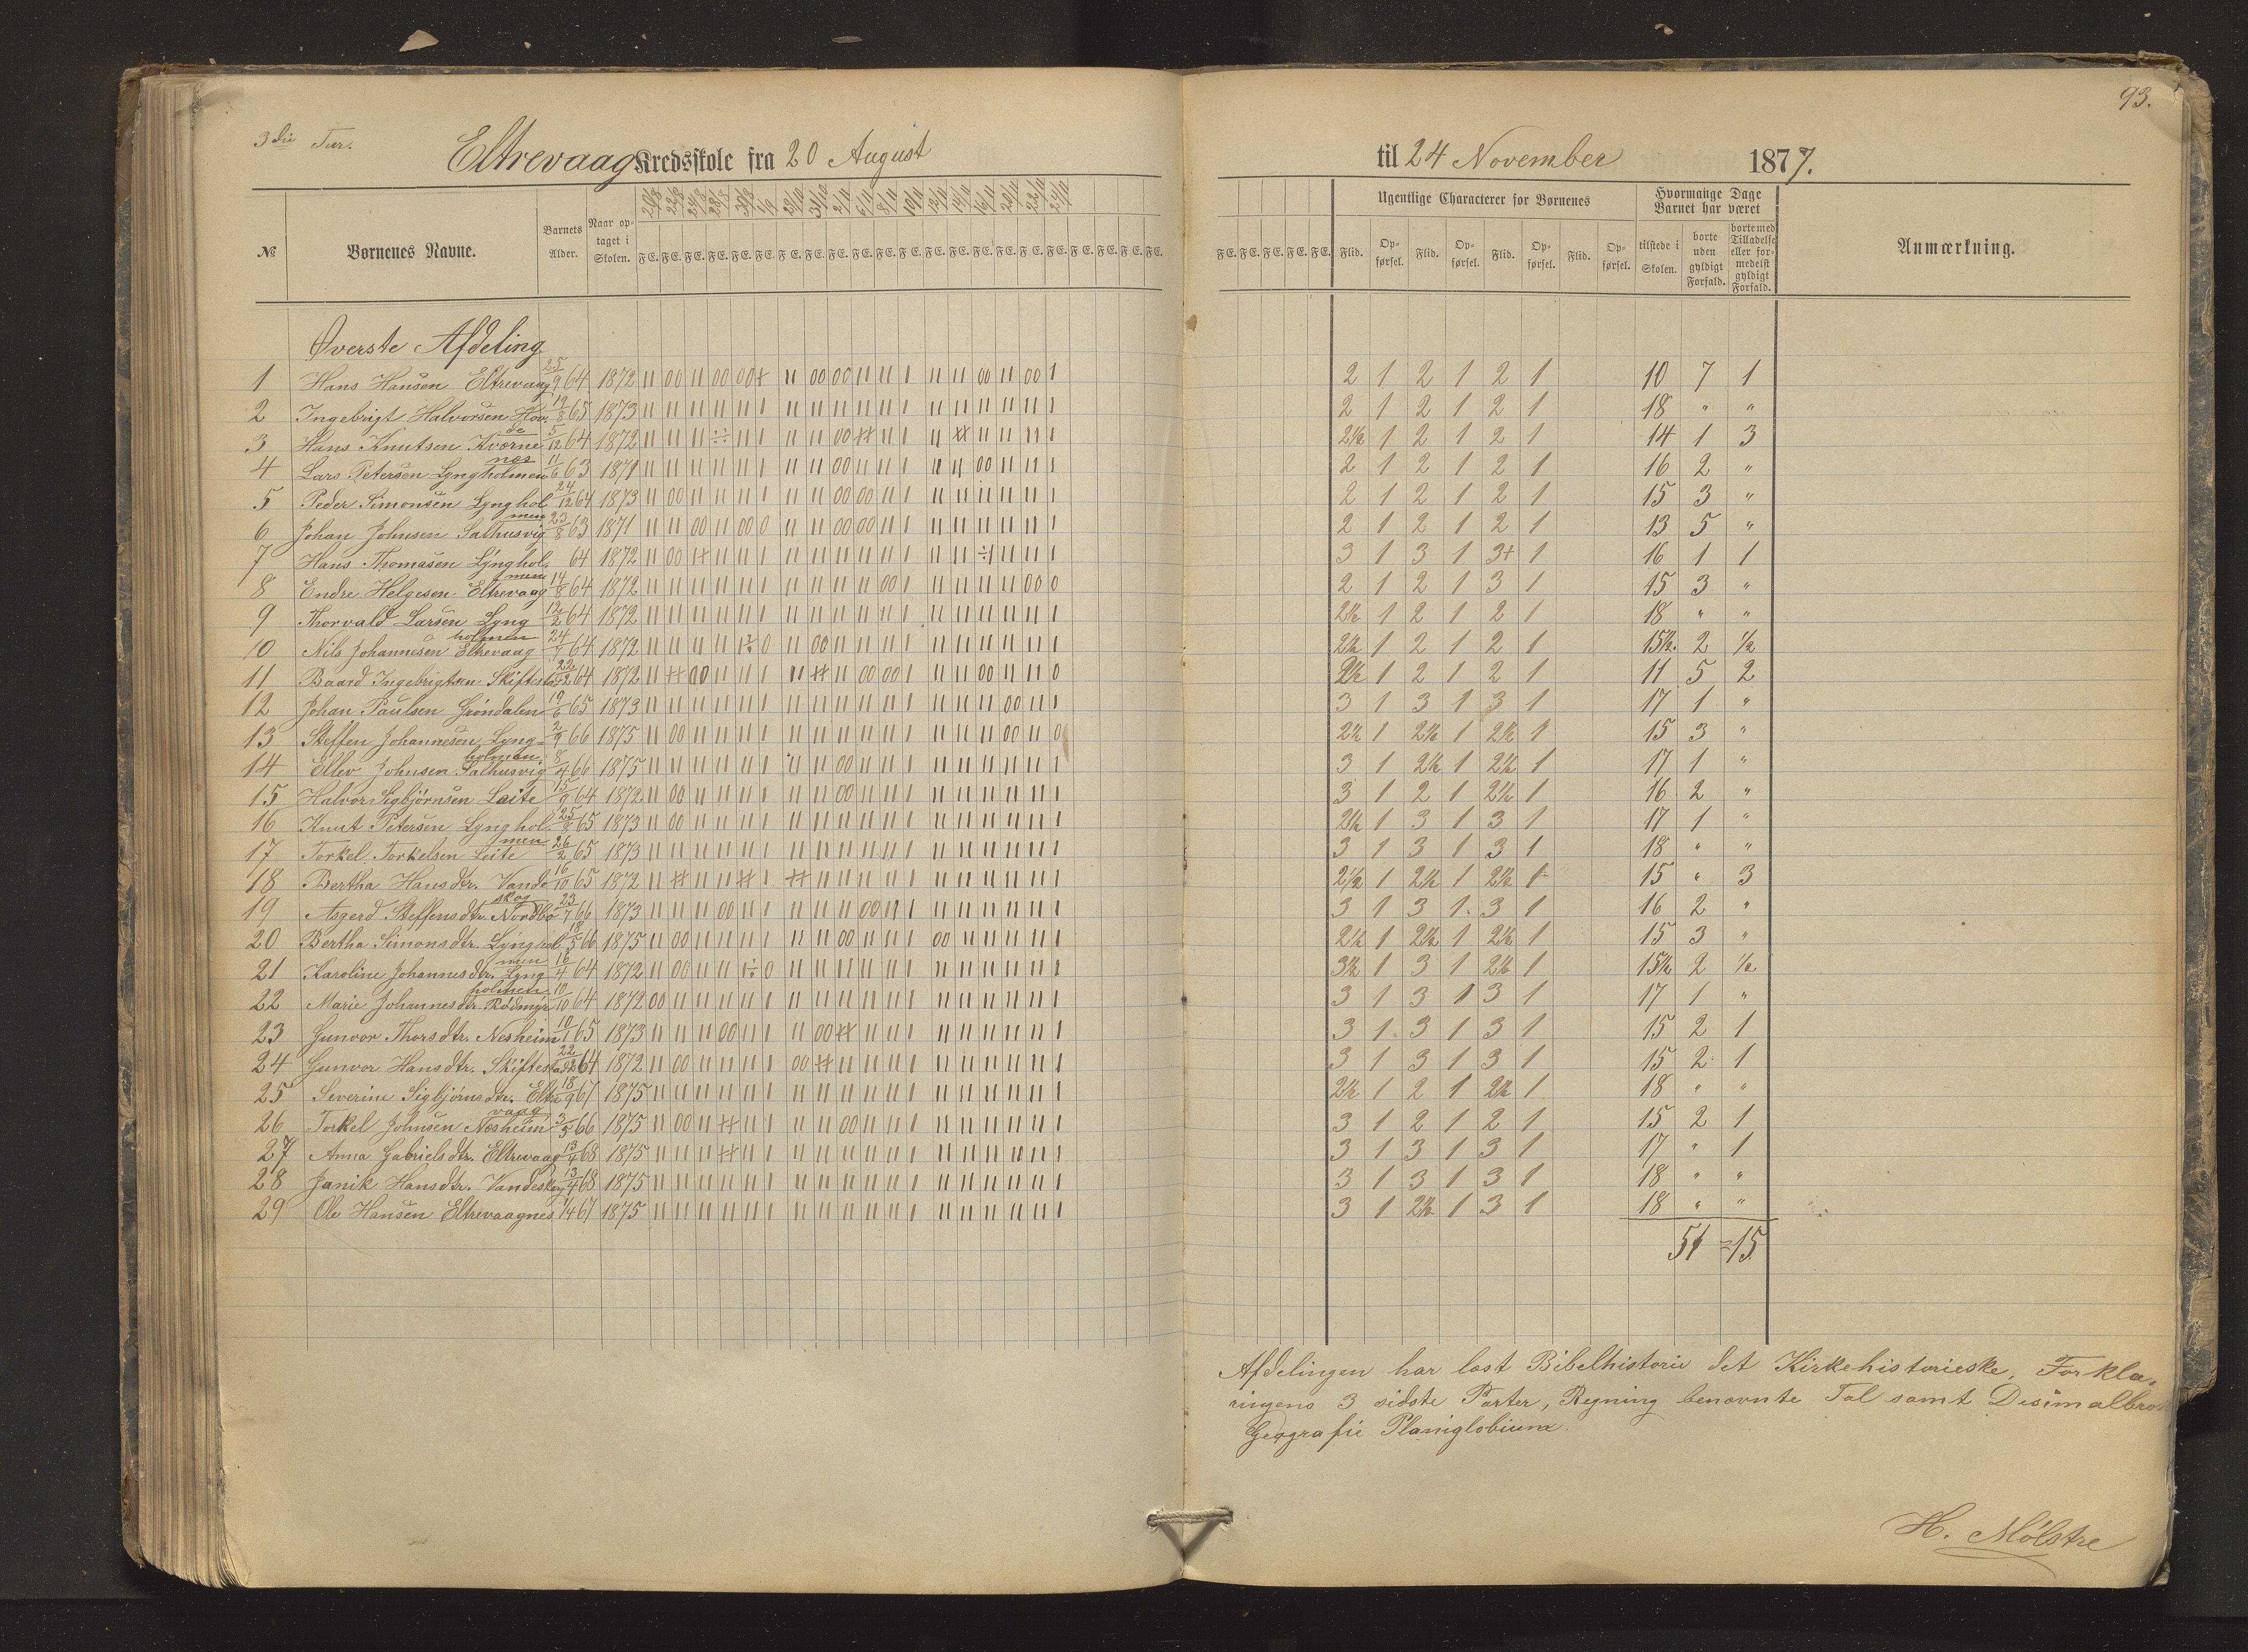 93.
3die Tur.
Eltrevaag Kredsskole fra 20 August til 24 November 1877.
№ Børnenes Navne. Barnets Alder. Naar optaget i Skolen. Ugentlige Characterer for Børnenes Hvormange Dage Barnet har været Anmærkning.
Flid. Opførsel. Flid. Opførsel. Flid. Opførsel. Flid. Opførsel. tilstede i Skolen. borte uden gyldigt Forfald. borte med Tilladelse eller formedelst gyldigt Forfald.
Øverste Afdeling
1 Hans Hansen Eltrevaag 25/9 64 1872 2 1 2 1 2 1 10 7 1
2 Ingebrigt Halvorsen Hovde 12/8 65 1873 2 1 2 1 2 1 18 " "
3 Hans Knutsen Kvernenes 5/12 64 1872 2½ 1 2 1 2 1 14 1 3
4 Lars Petersen Lyngholmen 11/6 63 1871 2 1 2 1 2 1 16 2 "
5 Peder Simonsen Lyngholmen 24/12 64 1873 2 1 2 1 2 1 15 3 "
6 Johan Johnsen Salhusvig 23/8 63 1871 2 1 2 1 2 1 13 5 "
7 Hans Thomasen Lyngholmen 64 1872 3 1 3 1 3+ 1 16 1 1
8 Endre Helgesen Eltrevaag 14/8 64 1872 2 1 2 1 3 1 15 3 "
9 Thorvald Larsen Lyngholmen 12/2 64 1872 2½ 1 2 1 2 1 18 " "
10 Nils Johannesen Eltrevaag 24/7 64 1872 2½ 1 2 1 2 1 15½ 2 ½
11 Baard Ingebrigtsen Skiftesta 64 1872 2½ 1 2 1 2 1 11 5 2
12 Johan Paulsen Grøndalen 19/6 65 1873 3 1 3 1 3 1 17 1 "
13 Steffen Johannesen Lyngholmen 2/9 66 1875 2½ 1 2½ 1 2½ 1 15 3 "
14 Ellev Johnsen Salhusvig 8/4 66 1875 3 1 2½ 1 2½ 1 17 1 "
15 Halvor Sigbjørnsen Leite 15/9 64 1872 3 1 2 1 2½ 1 16 2 "
16 Knut Petersen Lyngholmen 25/8 65 1873 2½ 1 3 1 3 1 17 1 "
17 Torkel Torkelsen Leite 26/2 65 1873 3 1 3 1 3 1 18 " "
18 Bertha Hansdtr. Vandeskog 16/10 65 1872 2½ 1 2½ 1 2½ 1 15 " 3
19 Asgerd Steffensdtr. Nordbø 23/7 66 1873 3 1 3 1 3 1 16 2 "
20 Bertha Simonsdtr. Lyngholmen 18/5 66 1875 2½ 1 2½ 1 2½ 1 15 3 "
21 Karoline Johannesdtr. Lyngholmen 16/4 64 1872 3½ 1 3 1 2½ 1 15½ 2 ½
22 Marie Johannesdtr. Rødmyr 10/10 64 1872 3 1 3 1 3 1 17 1 "
23 Gunvor Thorsdtr. Nesheim 10/1 65 1873 3 1 3 1 3 1 15 2 1
24 Gunvor Hansdtr. Skiftestad 22/2 64 1872 3 1 3 1 3 1 15 2 1
25 Severine Sigbjørnsdtr. Eltrevaag 18/9 67 1875 2½ 1 2 1 2½ 1 18 " "
26 Torkel Johnsen Nesheim 3/5 66 1875 3 1 2 1 2 1 15 2 1
27 Anna Gabrielsdtr. Eltrevaag 13/4 68 1875 3 1 3 1 3 1 17 " 1
28 Janik Hansdtr. Vandeskog 13/4 68 1875 3 1 3 1 3 1 18 " "
29 Ole Hansen Eltrevaagnes 1/4 67 1875 3 1 2½ 1 3 1 18 " "
51 15
Afdelingen har læst Bibelhistorie det Kirkehistorieske, Forkla-
ringens 3 sidste Parter, Regning benævnte Tal samt Desimalbrøk
Geografie Planiglobium.
H. Mølstre